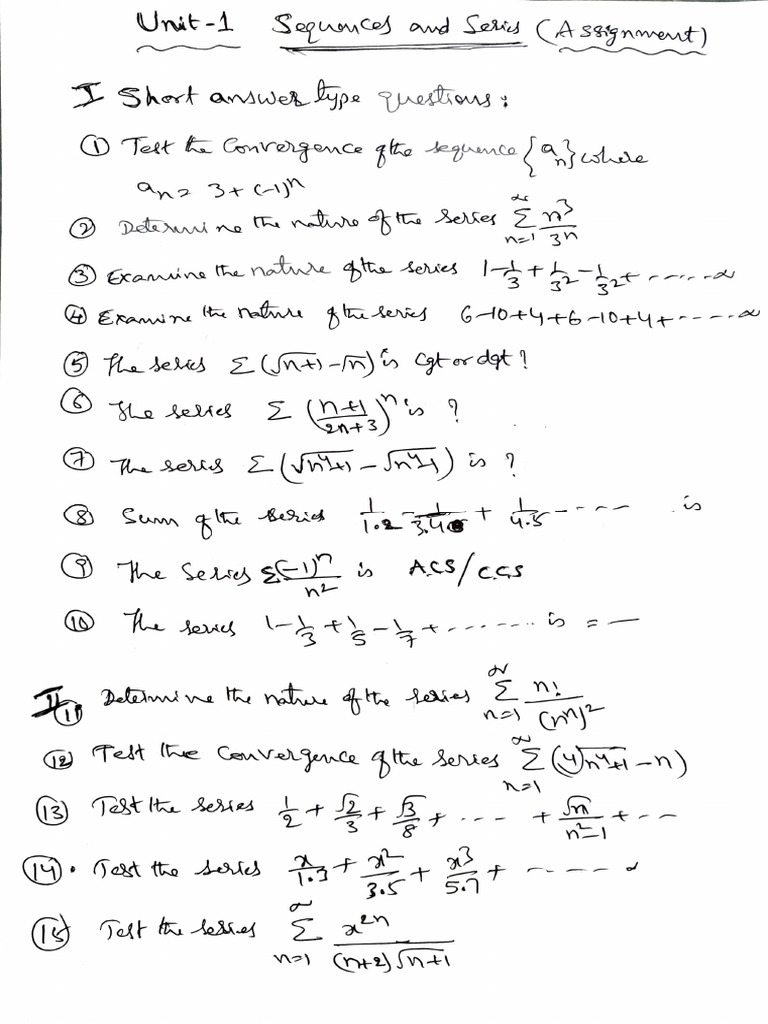 Unit-1 Sequences and Series (Assignment)
I Short answer type questions:
① Test the Convergence of the sequence {aₙ} where
aₙ = 3 + (-1)ⁿ
② Determine the nature of the series ∑_{n=1}^{∞} n³/3ⁿ
③ Examine the nature of the series 1 - 1/3 + 1/3² - 1/3² + ...... ∞
④ Examine the nature of the series 6-10+4+6-10+4+ ..... ∞
⑤ The series ∑(√n+1 - √n) is cgt or dgt?
⑥ The series ∑ (n+1/2n+3)ⁿ is ?
⑦ The series ∑(√n⁴+1 - √n⁴-1) is ?
⑧ Sum of the series 1/1.2 - 1/3.4 + 1/4.5 - .... is
⑨ The Series ∑(-1)ⁿ/n² is A.C.S/C.C.S
⑩ The series 1 - 1/3 + 1/5 - 1/7 + ....... is = —
II ⑪ Determine the nature of the series ∑_{n=1}^{∞} n!/(nⁿ)²
⑫ Test the convergence of the series ∑_{n=1}^{∞} (⁴√n⁴+1 - n)
⑬ Test the series 1/2 + √2/3 + √3/8 + .... + √n/n²-1 + ...
⑭. Test the series x/1.3 + x²/3.5 + x³/5.7 + ...... ∞
⑮ Test the series ∑_{n=1}^{∞} x²ⁿ/(n+2)√n+1